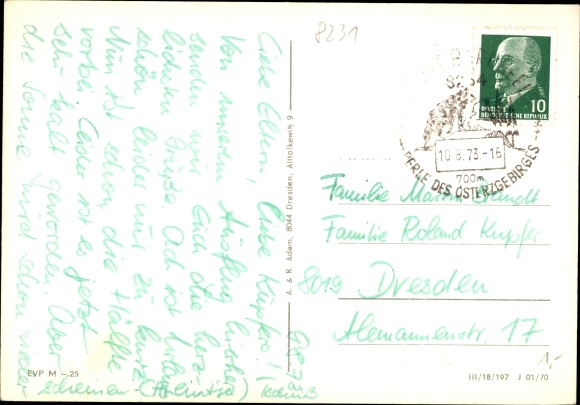 8231
Liebe Eltern, liebe Küpfers!
Von unserem Ausflug hierher
senden wir Euch die herz-
lichsten Grüße. Ach ist
schön leider nur zu kurz.
Nun ist schon die Hälfte
vorbei. Leider ist es jetzt
sehr kalt geworden. Aber
die Sonne wird schon wieder
scheinen
A. & R. Adam, 8044 Dresden, Altlockwitz 9
EVP M –.25
DEUTSCHE
DEMOKRATISCHE REPUBLIK
10
10.8.73-16
700m
PERLE DES OSTERZGEBIRGES
Familie
Familie Roland Kupfer
8019 Dresden
Alemannenstr. 17
1,-
III/18/197 J 01/70